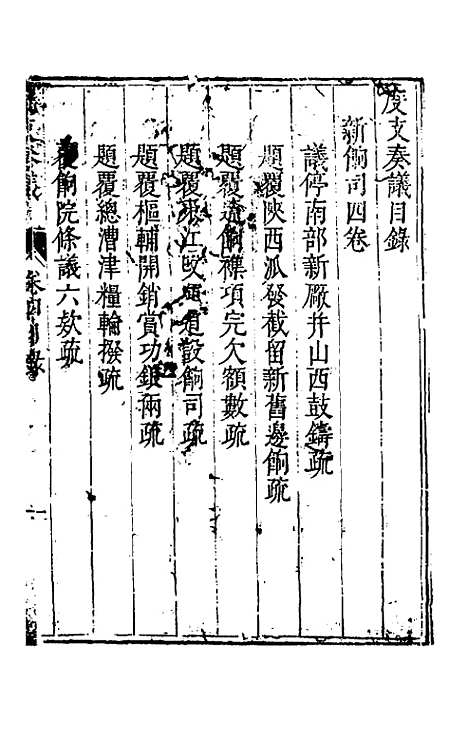 度支奏議目錄
新餉司四卷
議停南部新廠并山西鼓鑄疏
題覆陝西派發截留新舊邊餉疏
題覆遼餉襍項完欠額數疏
題覆江改道設餉司疏
題覆樞輔開銷賞功銀兩疏
題覆總漕津糧輪撥疏
覆餉院條議六欵疏
度支奏議
卷四目錄
一